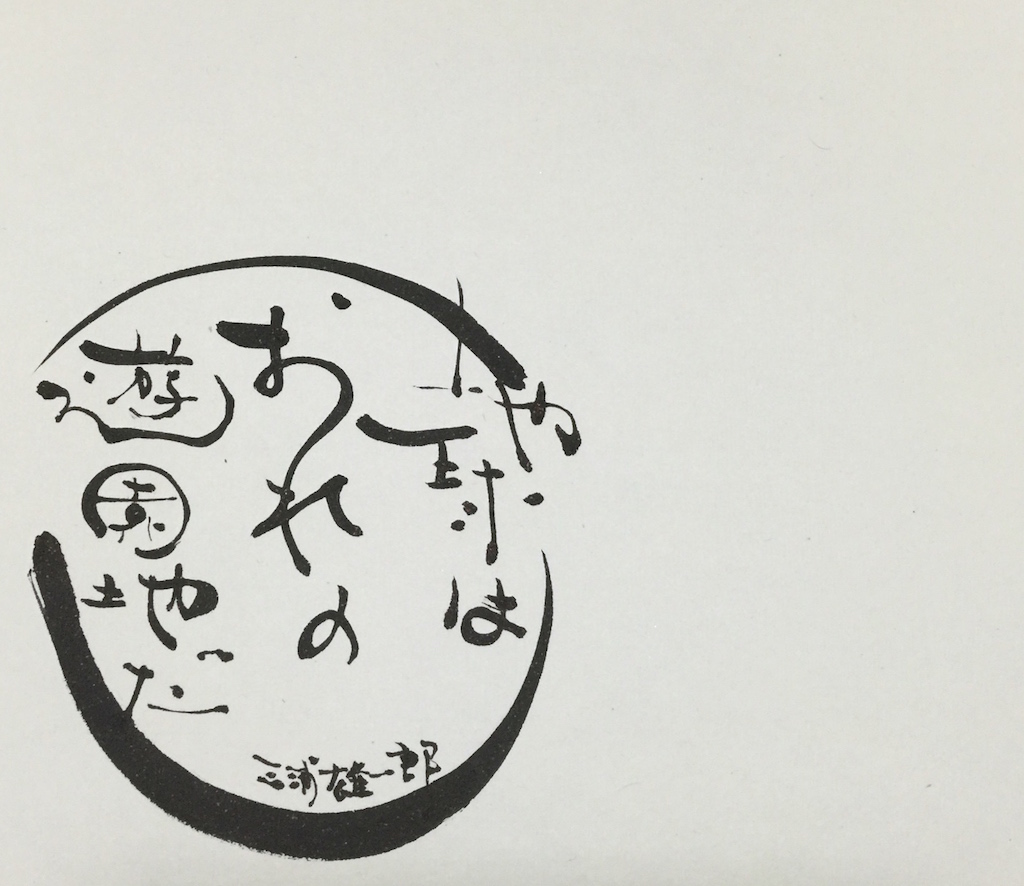 地球は
おれの
遊園地だ
三浦雄一郎